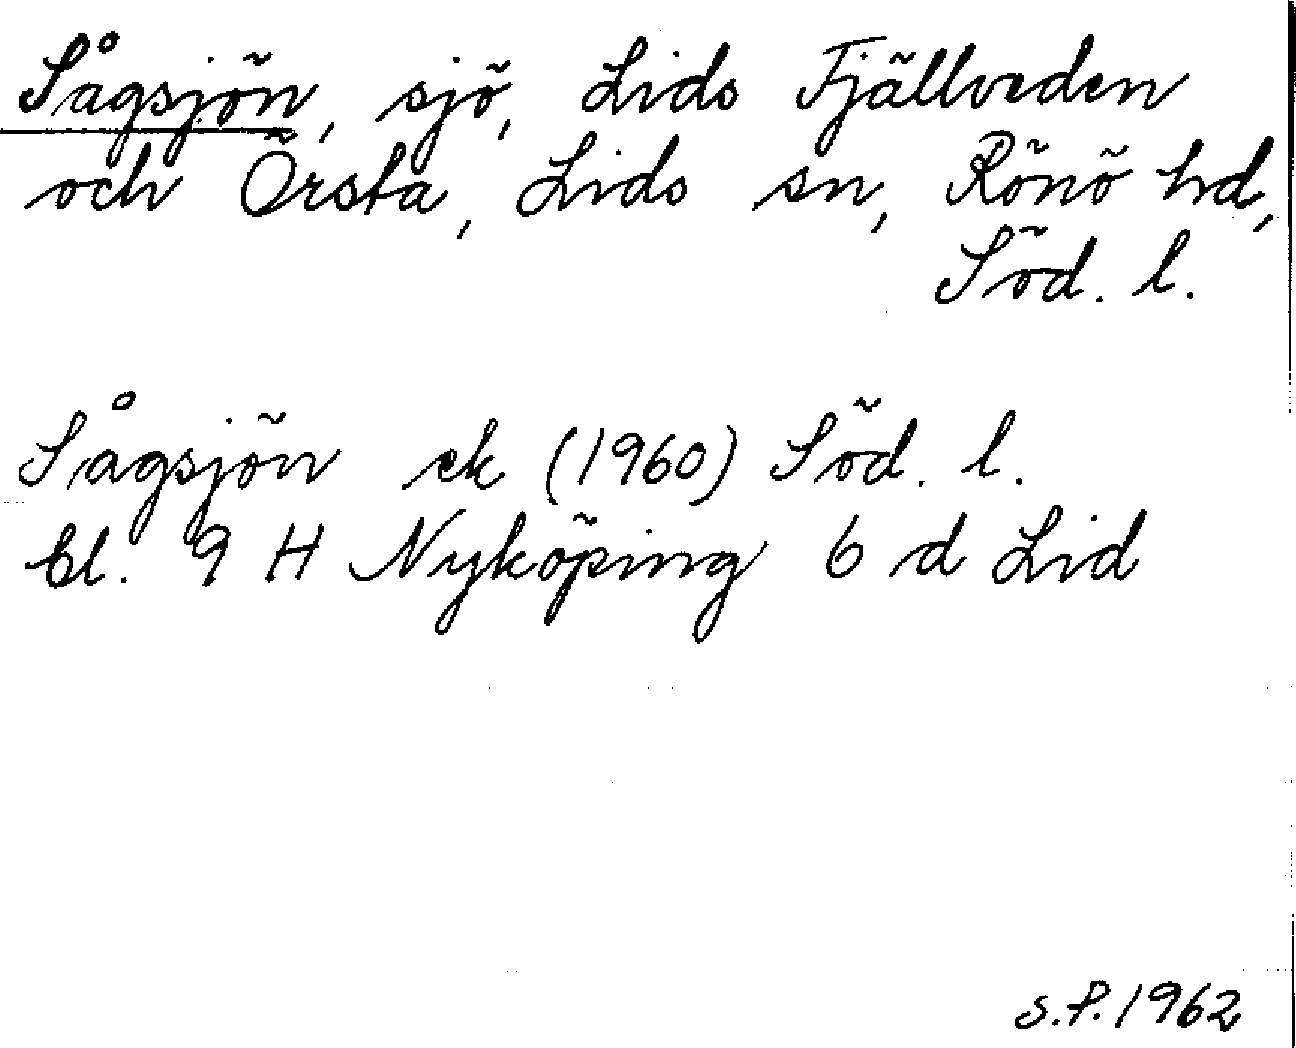 Sågsjön, sjö, Lids Fjällveden
och Örsta, Lids sn, Rönö hd,
Söd. l.
Sågsjön ek (1960) Söd. l.
bl. 9 H Nyköping 6 d Lid
S.P. 1962